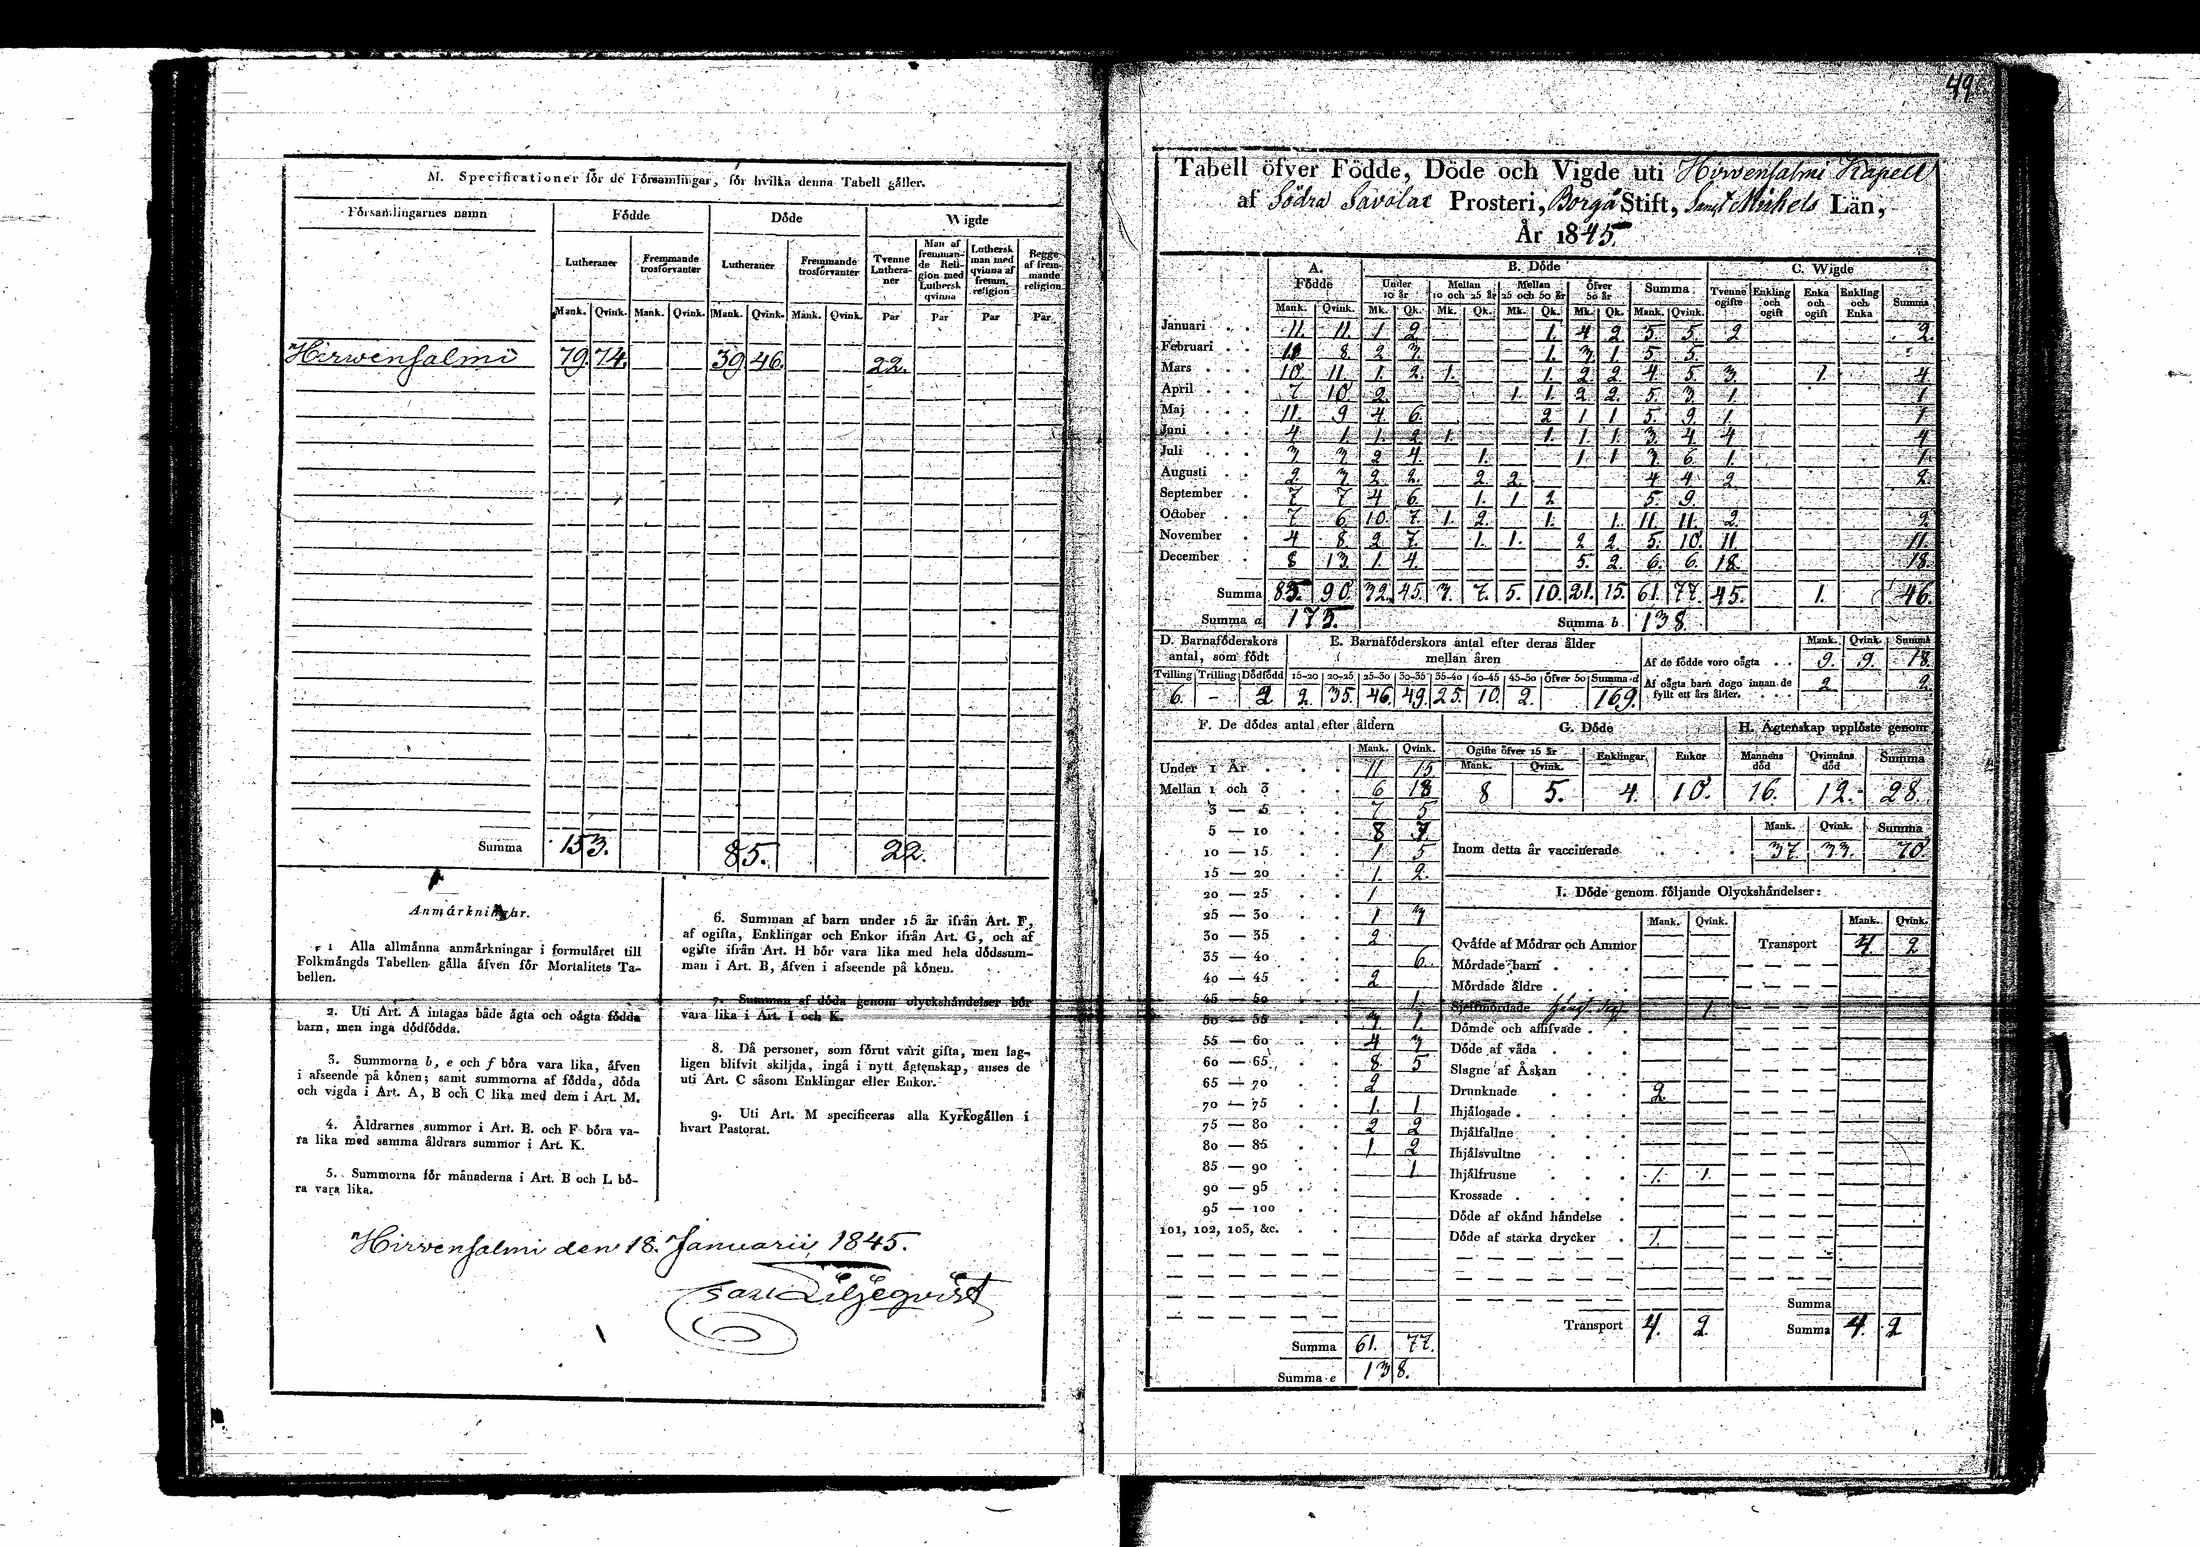 49.
M. Specificationer för de Församlingar, för hvilka denna Tabell gäller.
Församlingarnes namn Födde Döde Wigde
Lutheraner Fremmande trosförvanter Lutheraner Fremmande trosförvanter Tvenne Lutheraner Man af fremmande Religion med Luthersk qvinna Luthersk man med qvinna af fremm. religion Begge af fremmande religion
Mank. Qvink. Mank. Qvink. Mank. Qvink. Mank. Qvink. Par Par Par Par
Hirwensalmi 79. 74. 39 46. 22.
Summa 153. 85. 22.
Anmärkningar.
1 Alla allmänna anmärkningar i formuläret till
Folkmängds Tabellen gälla äfven för Mortalitets Ta-
bellen.
2. Uti Art. A intagas både ägta och oägta födda
barn, men inga dödfödda.
3. Summorna b, e och f böra vara lika, äfven
i afseende på könen; samt summorna af födda, döda
och vigda i Art. A, B och C lika med dem i Art. M.
4. Åldrarnes summor i Art. B. och F böra va-
ra lika med samma åldrars summor i Art. K.
5. Summorna för månaderna i Art. B och L bö-
ra vara lika.
6. Summan af barn under 15 år ifrån Art. F,
af ogifta, Enklingar och Enkor ifrån Art. G, och af
ogifte ifrån Art. H bör vara lika med hela dödssum-
man i Art. B, äfven i afseende på könen.
7. Summan af döda genom olyckshändelser bör
vara lika i Art. I och K.
8. Då personer, som förut varit gifta, men lag-
ligen blifvit skiljda, ingå i nytt ägtenskap, anses de
uti Art. C såsom Enklingar eller Enkor.
9. Uti Art. M specificeras alla Kyrkogällen i
hvart Pastorat.
Hirvensalmi den 18. Januarii 1845.
Carl Liljeqvist
Tabell öfver Födde, Döde och Vigde uti Hirvensalmi Kapell
af Södra Savolax Prosteri, Borgå Stift, Sanct Michels Län,
År 1845.
A. Födde B. Döde C. Wigde
Under 10 år Mellan 10 och 25 år Mellan 25 och 50 år Öfver 50 år Summa Tvenne ogifte Enkling och ogift Enka och ogift Enkling och Enka Summa
Mank. Qvink. Mk. Qk. Mk. Qk. Mk. Qk. Mk. Qk. Mank. Qvink.
Januari 11. 11. 1 2 1. 4 2 5. 5. 2 2.
Februari 11 8 2 3. 1. 3 1 5 5.
Mars 10. 11. 1. 2. 1. 1. 2 2 4. 5. 3. 1. 4
April 7 10 2. 1. 1. 2 2. 5. 3 1. 1
Maj 11. 9 4 6. 2 1 1 5. 9. 1. 1
Juni 4 1. 1. 2 1. 1. 1. 1. 3. 4 4 4
Juli 3 3 2 4. 1. 1 1 3. 6. 1. 1.
Augusti 2 3 2 2. 2 2. 4 4 2 2.
September 7 7 4 6. 1. 1 2 5. 9
October 7 6 10. 7. 1. 2. 1. 1. 11. 11. 2. 2
November 4 8 2 7. 1. 1. 2 2. 5. 10. 11. 11.
December 8 13. 1. 4. 5. 2 6. 6. 18. 18.
Summa 85. 90 32. 45. 3. 7. 5. 10. 21. 15. 61. 77. 45. 1. 46.
Summa a 175. Summa b 138
D. Barnaföderskors antal, som födt
Tvilling Trilling Dödfödd
6. – 2
E. Barnaföderskors antal efter deras ålder
mellan åren
15–20 20–25 25–30 30–35 35–40 40–45 45–50 Öfver 50 Summa d
2. 35. 46. 49. 25. 10. 2. 169.
Mank. Qvink. Summa
Af de födde voro oägta 9. 9. 18.
Af oägta barn dogo innan de
fyllt ett års ålder. 2 2.
F. De dödes antal efter åldern
Mank. Qvink.
Under 1 År 11 15
Mellan 1 och 3 6 18
3 — 5 7 5
5 — 10 8 7
10 — 15 1 5
15 — 20 1. 2.
20 — 25 1
25 — 30 1 3
30 — 35 2
35 — 40 6.
40 — 45 2
45 — 50 1.
50 — 55 3 1.
55 — 60 4 3
60 — 65 8 5
65 — 70 2
70 — 75 1. 1
75 — 80 2 2
80 — 85 1. 2
85 — 90 1.
90 — 95
95 — 100
101, 102, 103, &c.
Summa 61. 77.
Summa e 138.
G. Döde
Ogifte öfver 15 år Enklingar Enkor
Mank. Qvink.
8 5. 4. 10.
H. Ägtenskap upplöste genom
Mannens död Qvinnans död Summa
16. 12. 28.
Mank. Qvink. Summa
Inom detta år vaccinerade 37 33. 70.
I. Döde genom följande Olyckshändelser:
Mank. Qvink. Mank. Qvink.
Qväfde af Mödrar och Ammor Transport 4 2
Mördade barn
Mördade äldre
Sjelfmördade 1.
Dömde och aflifvade
Döde af våda
Slagne af Åskan
Drunknade 2.
Ihjälosade
Ihjälfallne
Ihjälsvultne
Ihjälfrusne 1. 1.
Krossade
Döde af okänd händelse
Döde af starka drycker 1.
Summa
Transport 4. 2. Summa 4. 2